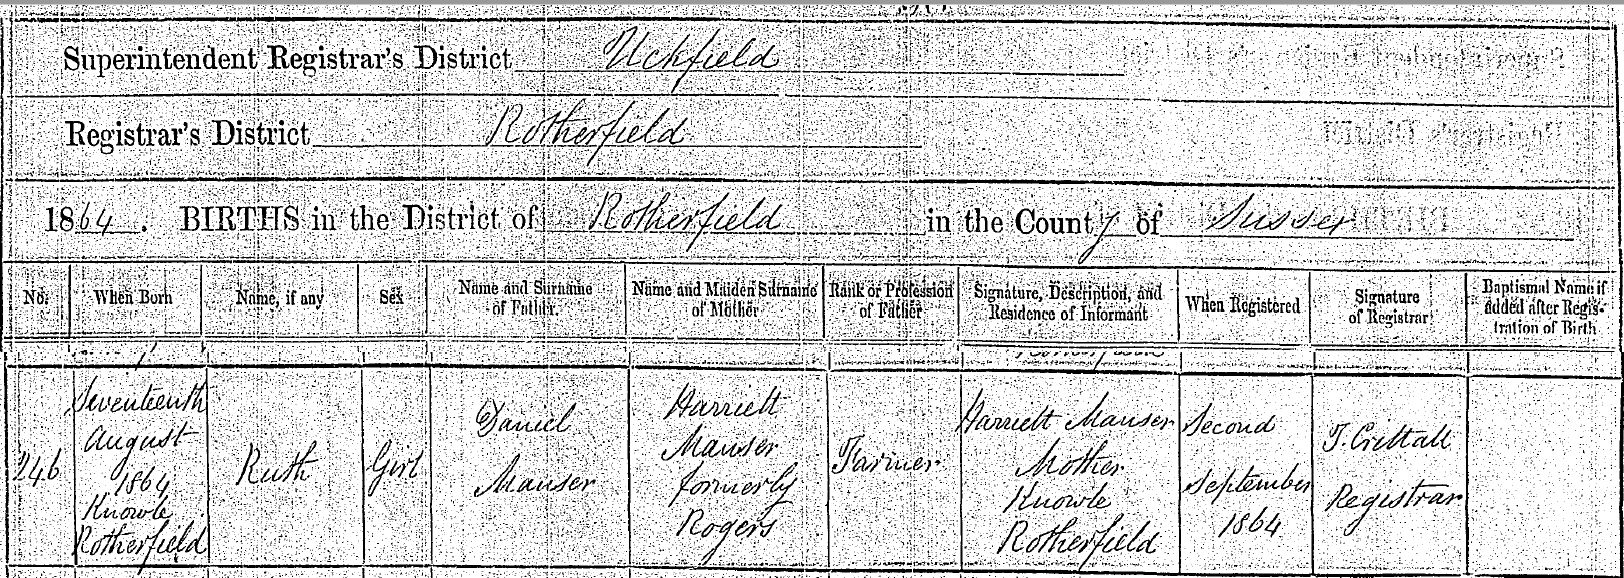 Superintendent Registrar's District Uckfield
Registrar's District Rotherfield
1864. BIRTHS in the District of Rotherfield in the County of Sussex
No.
When Born
Name, if any
Sex
Name and Surname
of Father.
Name and Maiden Surname
of Mother
Rank or Profession
of Father
Signature, Description, and
Residence of Informant
When Registered
Signature
of Registrar
Baptismal Name if
added after Regis-
tration of Birth
246
Seventeenth
August
1864
Knowle
Rotherfield
Ruth
Girl
Daniel
Mauser
Harriett
Mauser
formerly
Rogers
Farmer
Harriett Mauser
Mother
Knowle
Rotherfield
Second
September
1864
T. Crittall
Registrar